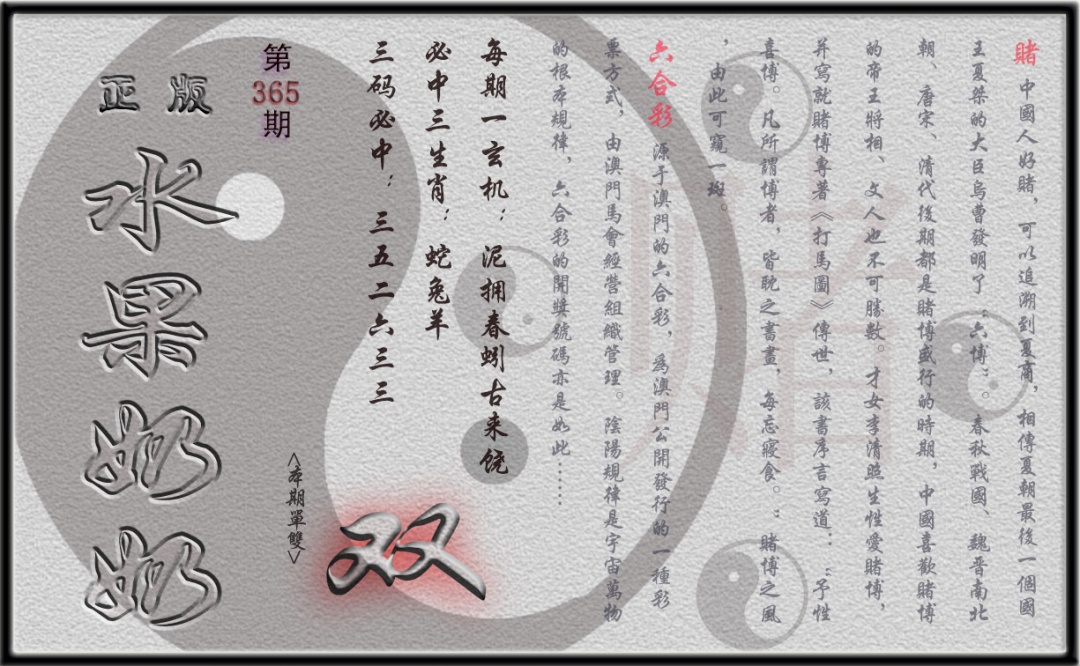 賭 中國人好賭，可以追溯到夏商，相傳夏朝最後一個國
王夏桀的大臣烏曹發明了“六博”。春秋戰國、魏晋南北
朝、唐宋、清代後期都是賭博盛行的時期，中國喜歡賭博
的帝王將相、文人也不可勝數。才女李清照生性愛賭博，
并寫就賭博專著《打馬圖》傳世，該書序言寫道：“予性
喜博。凡所謂博者，皆耽之晝晝，每忘寢食。”賭博之風
，由此可窺一斑。
六合彩 源于澳門的六合彩，為澳門公開發行的一種彩
票方式，由澳門馬會經營組織管理。陰陽規律是宇宙萬物
的根本規律，六合彩的開獎號碼亦是如此……
每期一玄机：泥拥春蚓古来饶
必中三生肖：蛇兔羊
三码必中：三五二六三三
第
365
期
<本期單雙>
双
正版
水果奶奶
赌